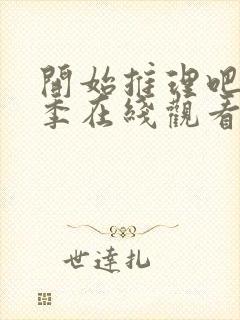 開始推理吧
季在綫觀看
世達扎